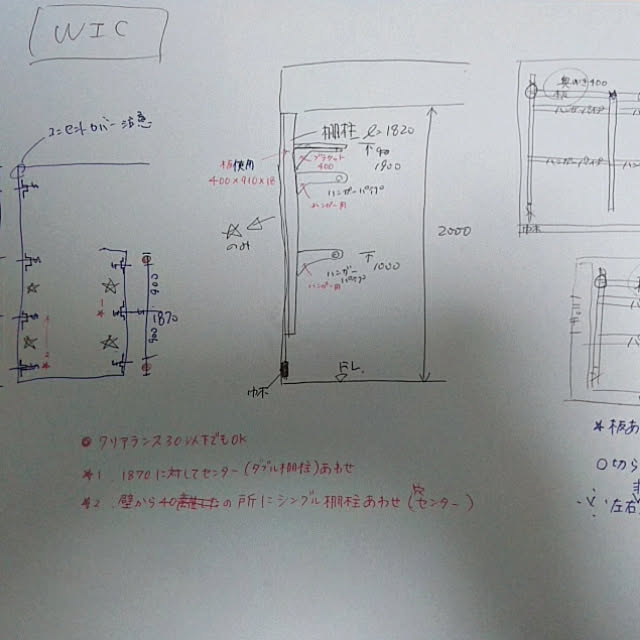 WIC
コンセントカバー注意
棚柱 ℓ=1820
板使用
400×910×18
ブラケット
400
1900
ハンガーパイプ
ハンガー用
☆
のみ
2000
1000
ハンガー
パイプ
ハンガー用
FL
巾木
900
1870
900
*1
*2
奥行き400
板
ハンガーパイプ
ハンガーパイプ
巾木
◎ クリアランス30以下でもOK
*1 1870に対してセンター(ダブル棚柱)あわせ
*2 壁から40の所にシングル棚柱あわせ(穴センター)
*板あ
○切ら
左右